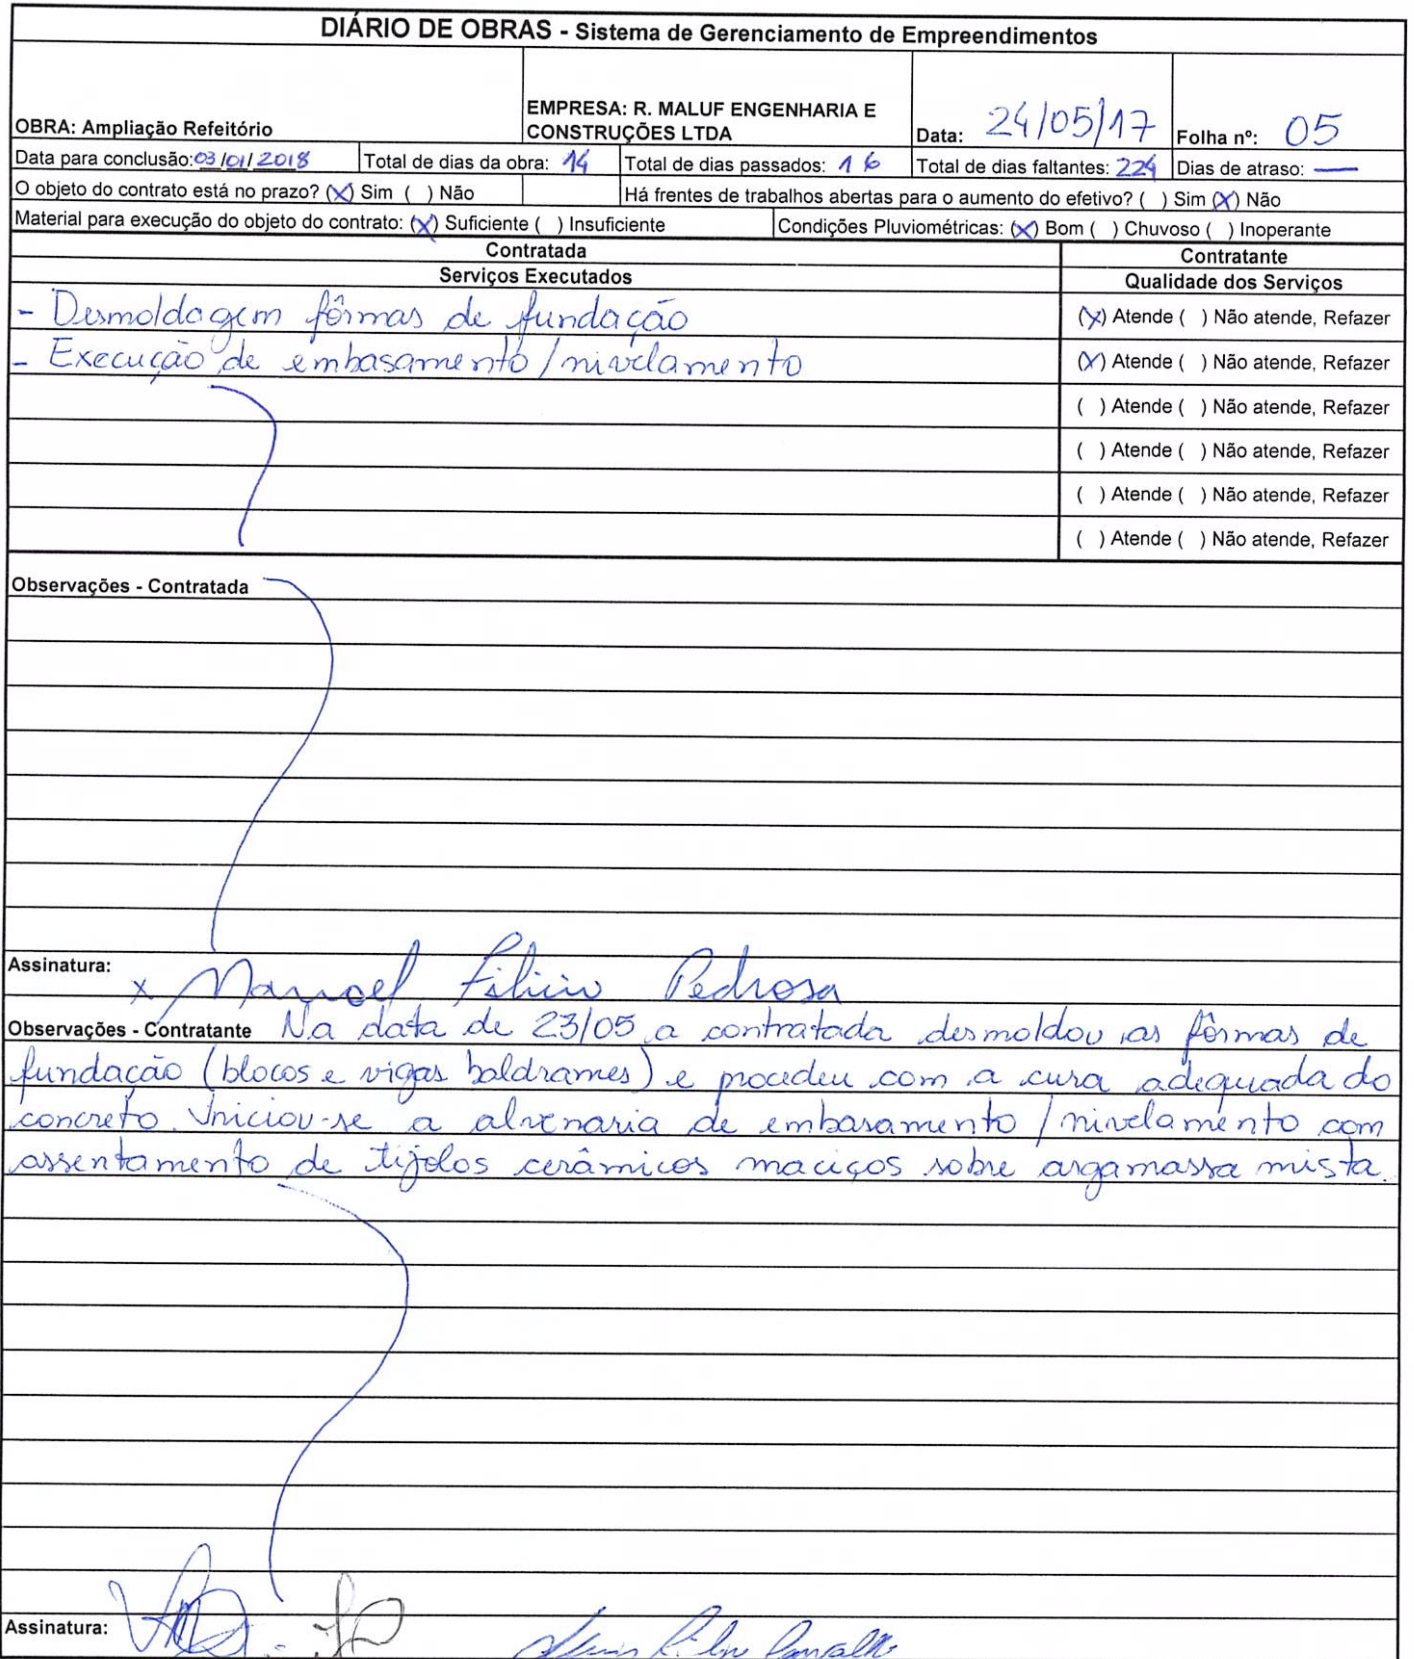 DIÁRIO DE OBRAS - Sistema de Gerenciamento de Empreendimentos
OBRA: Ampliação Refeitório
EMPRESA: R. MALUF ENGENHARIA E
CONSTRUÇÕES LTDA
Data: 24/05/17
Folha nº: 05
Data para conclusão: 03/01/2018
Total de dias da obra: 14
Total de dias passados: 16
Total de dias faltantes: 224
Dias de atraso: —
O objeto do contrato está no prazo? (X) Sim ( ) Não
Há frentes de trabalhos abertas para o aumento do efetivo? ( ) Sim (X) Não
Material para execução do objeto do contrato: (X) Suficiente ( ) Insuficiente
Condições Pluviométricas: (X) Bom ( ) Chuvoso ( ) Inoperante
Contratada
Contratante
Serviços Executados
Qualidade dos Serviços
- Desmoldagem fôrmas de fundação
(X) Atende ( ) Não atende, Refazer
- Execução de embasamento/nivelamento
(X) Atende ( ) Não atende, Refazer
( ) Atende ( ) Não atende, Refazer
( ) Atende ( ) Não atende, Refazer
( ) Atende ( ) Não atende, Refazer
( ) Atende ( ) Não atende, Refazer
Observações - Contratada
Assinatura:
x Manoel Pedrosa
Observações - Contratante Na data de 23/05 a contratada desmoldou as fôrmas de
fundação (blocos e vigas baldrames) e procedeu com a cura adequada do
concreto. Iniciou-se a alvenaria de embasamento/nivelamento com
assentamento de tijolos cerâmicos maciços sobre argamassa mista.
Assinatura: